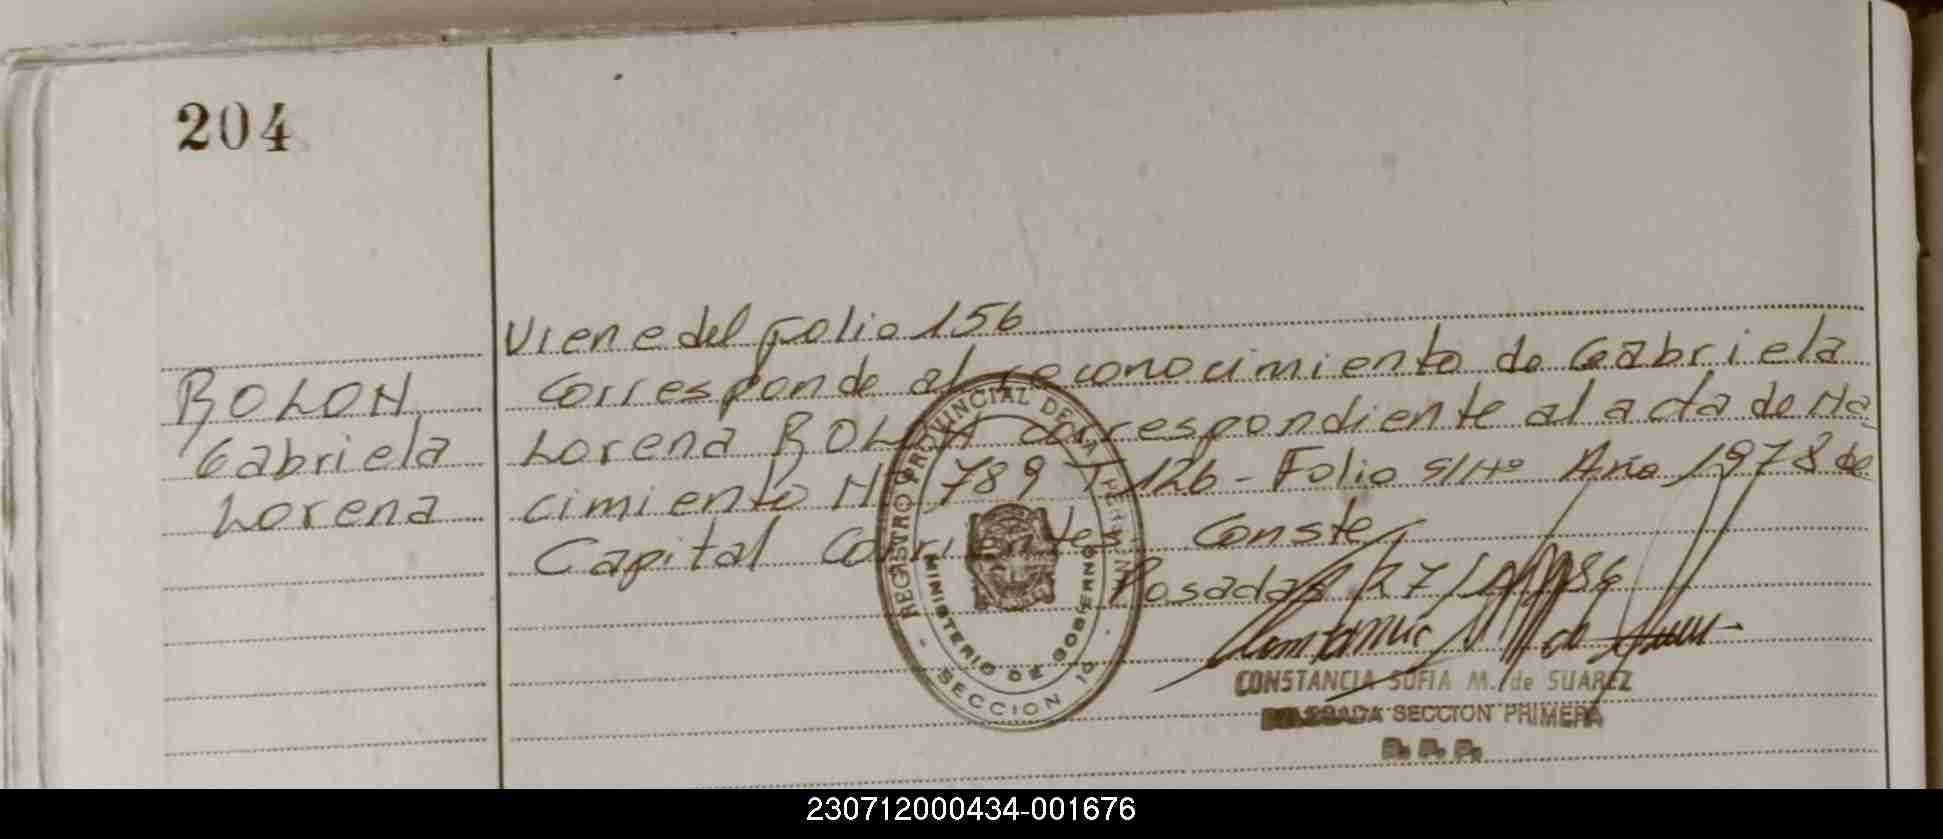 204
Viene del folio 156
ROLON
Gabriela
Lorena
corresponde al reconocimiento de Gabriela
Lorena ROLON correspondiente al acta de Na
cimiento Nº 789 Tº 126 - Folio S/Nº Año 1978 de
Capital Corrientes Conste
Posadas 27
REGISTRO PROVINCIAL DE LA
MINISTERIO DE GOBIERNO
SECCION 1º
CONSTANCIA SOFIA M. de SUAREZ
DELEGADA SECCION PRIMERA
R. P. P.
230712000434-001676